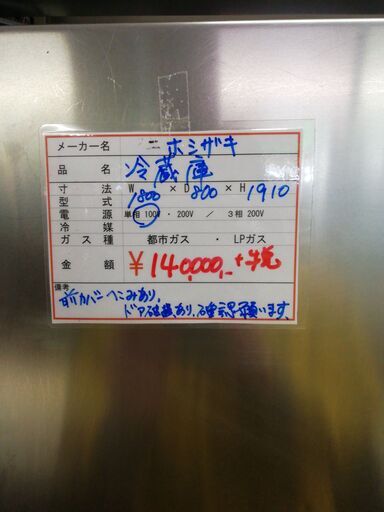 メーカー名 ホシザキ
品名 冷蔵庫
寸法 W × D × H
型式 1800 800 1910
電源 単相 100V ・ 200V / 3相 200V
冷媒
ガス種 都市ガス ・ LPガス
金額 ¥140,000,- +税
備考
前カバーへこみあり、
ドア破損あり、確認願います。